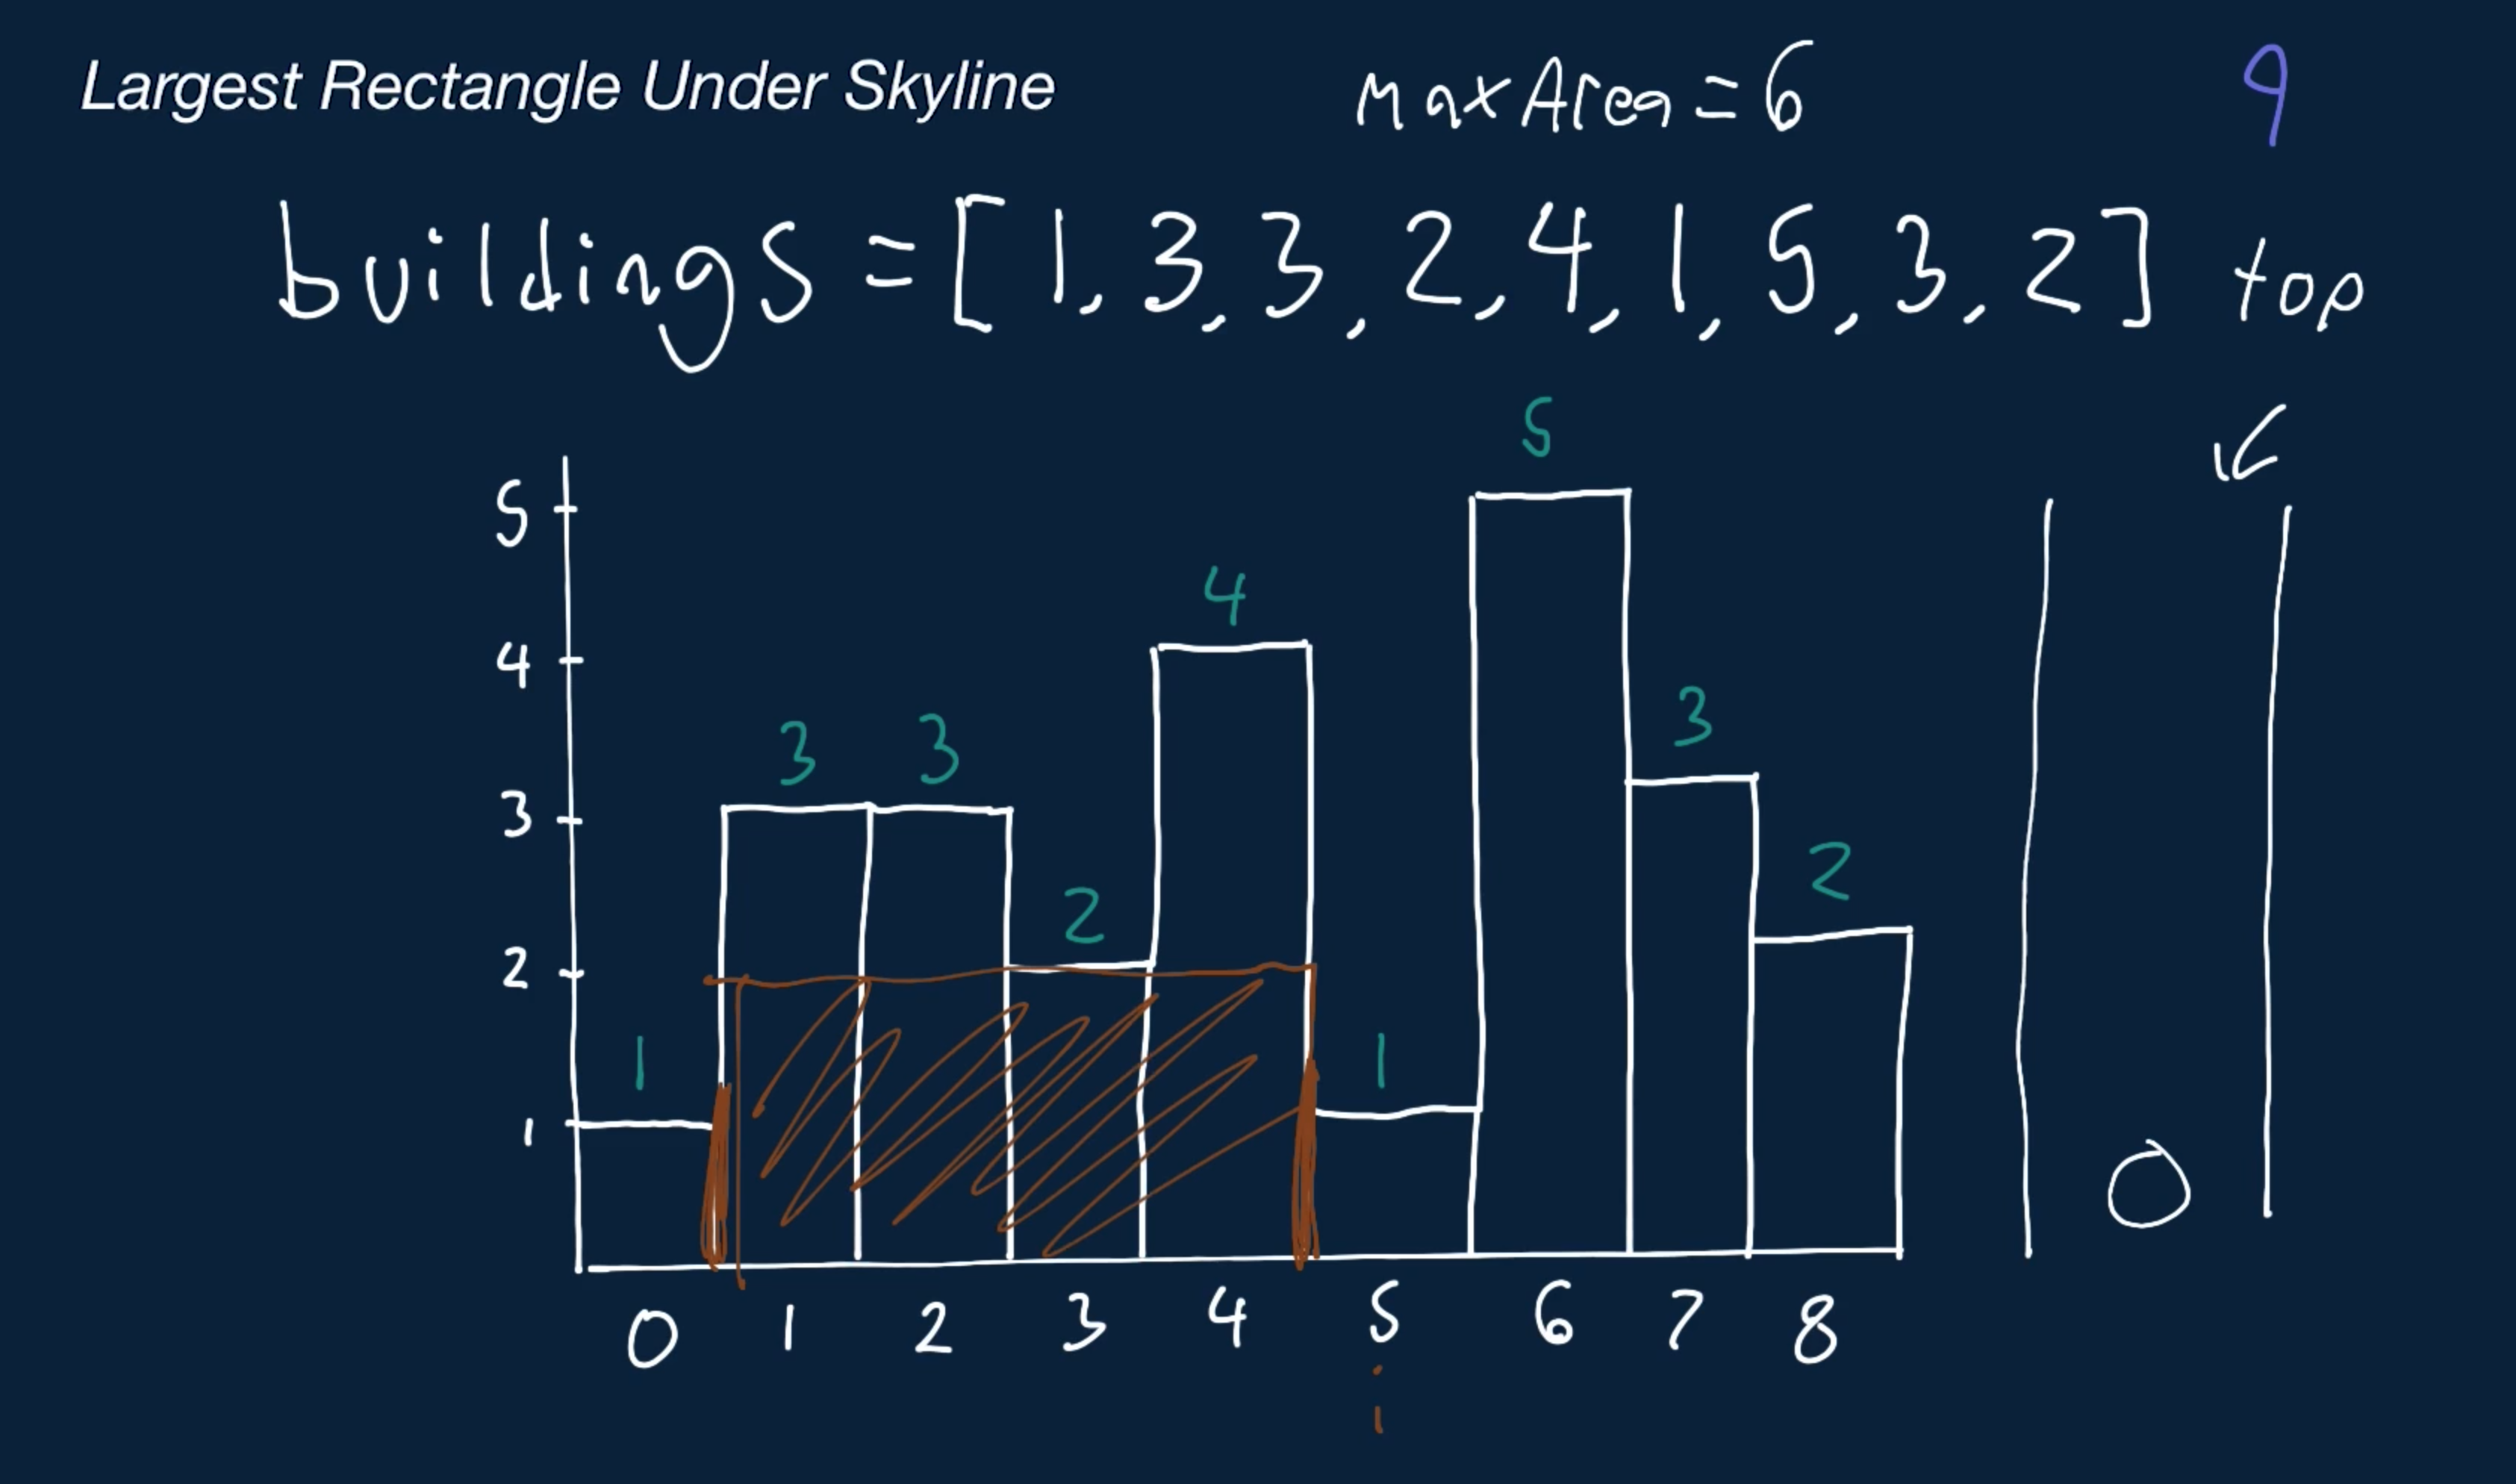 Largest Rectangle Under Skyline
MaxArea = 6
9
buildings = [1, 3, 3, 2, 4, 1, 5, 3, 2]
top
5
4
3
2
1
1
3
3
2
4
1
5
3
2
0
0 1 2 3 4 5 6 7 8
i